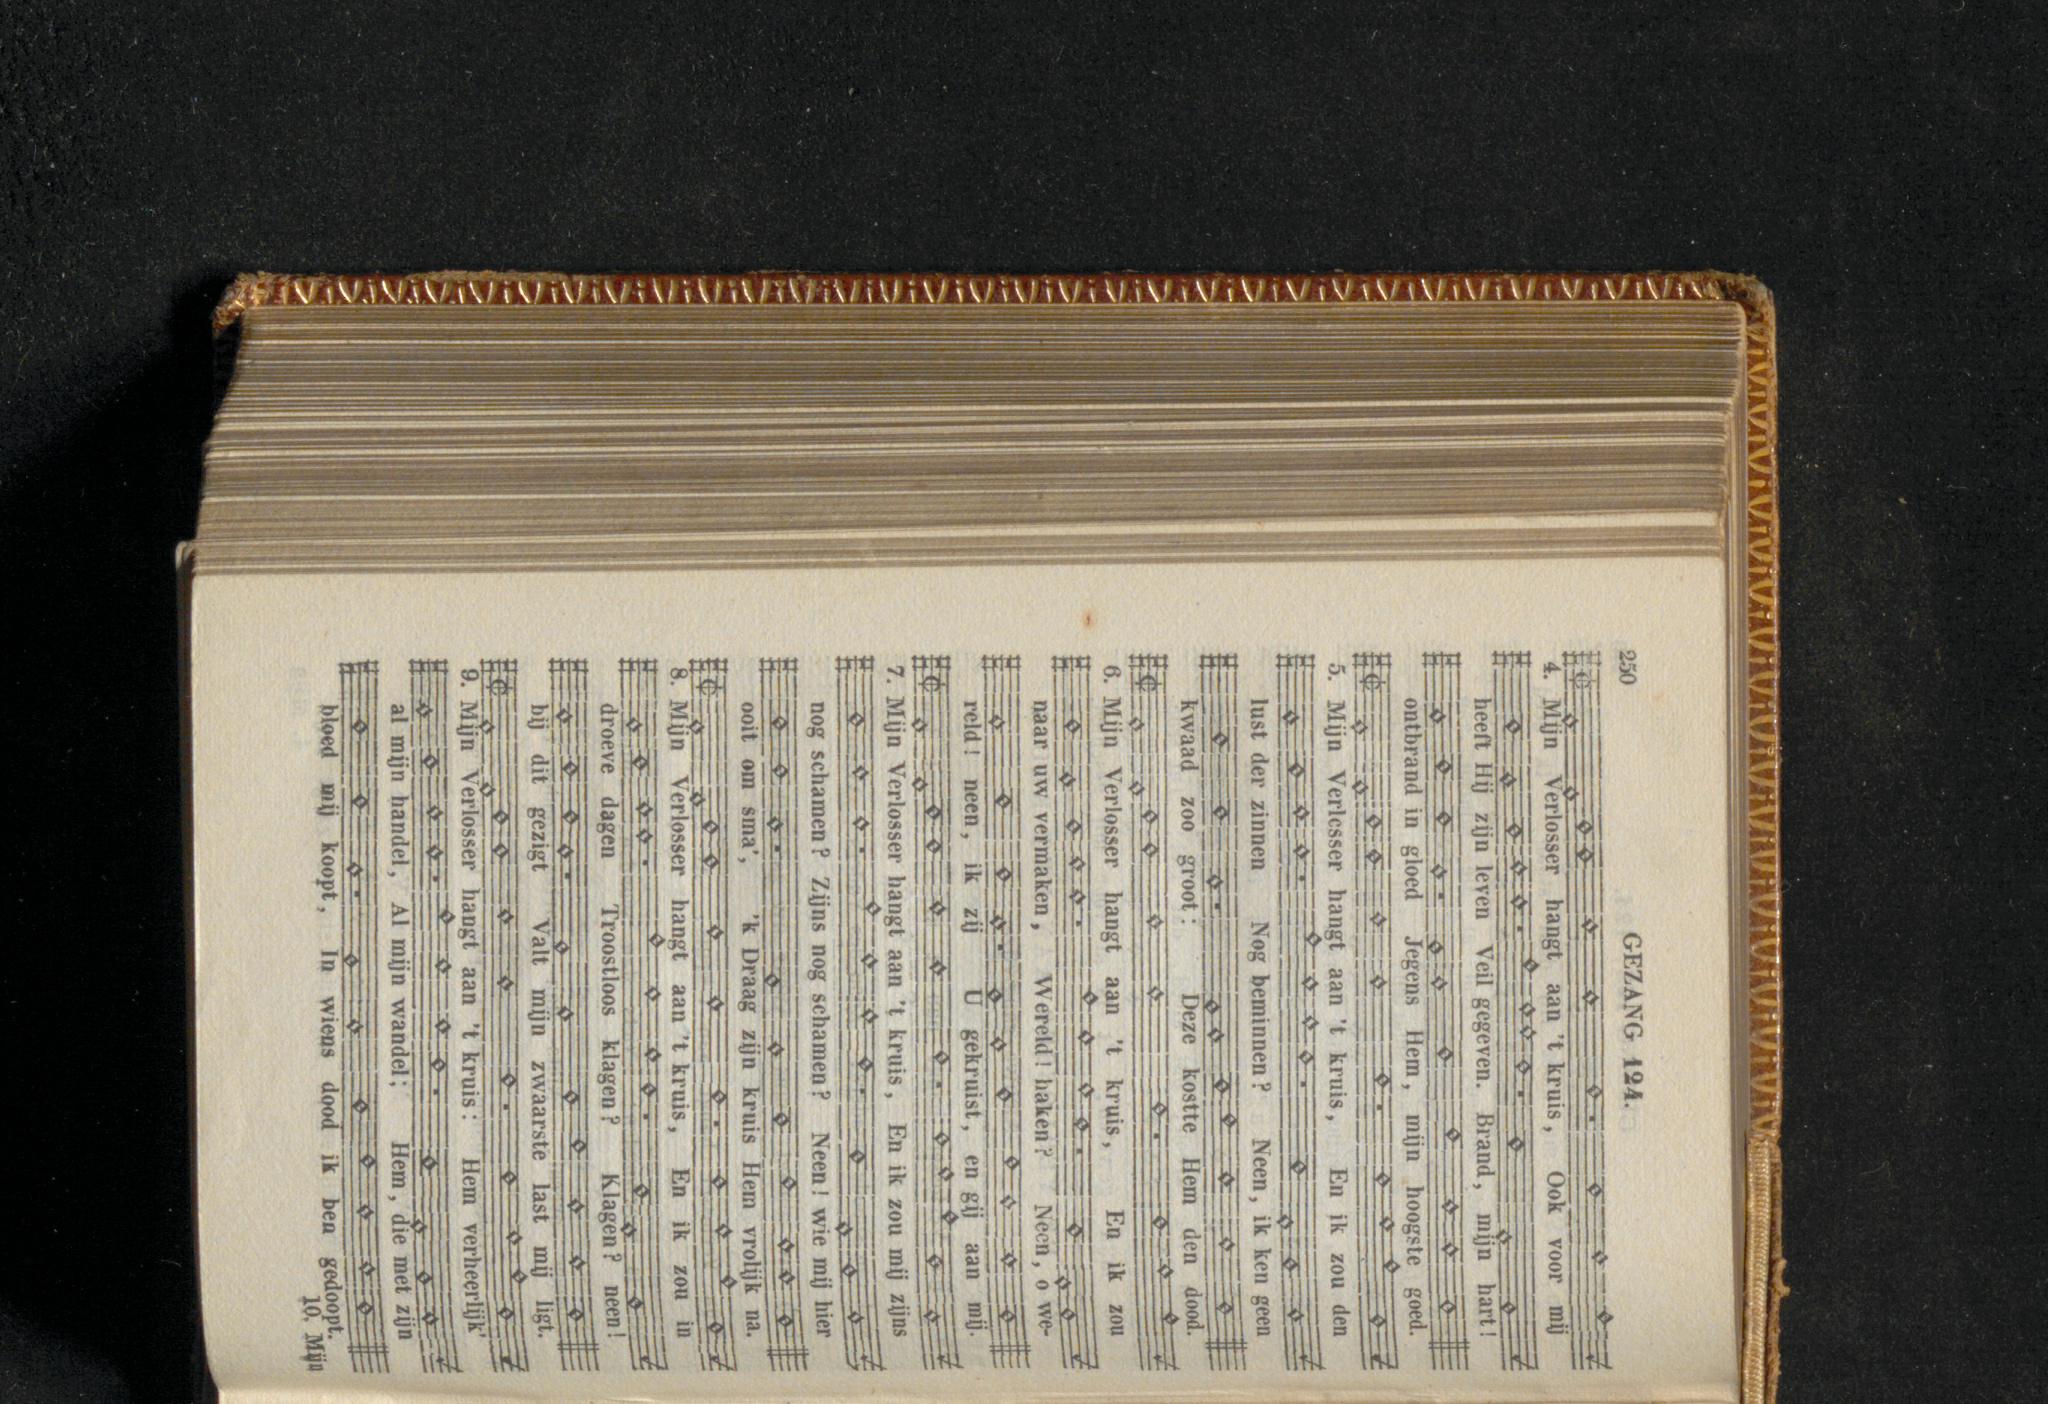 250
GEZANG 124.
4. Mijn Verlosser hangt aan 't kruis, Ook voor mij
heeft Hij zijn leven Veil gegeven. Brand, mijn hart!
ontbrand in gloed Jegens Hem, mijn hoogste goed.
5. Mijn Verlosser hangt aan 't kruis, En ik zou den
lust der zinnen Nog beminnen? Neen, ik ken geen
kwaad zoo groot: Deze kostte Hem den dood.
6. Mijn Verlosser hangt aan 't kruis, En ik zou
naar uw vermaken, Wereld! haken? Neen, o we-
reld! neen, ik zij U gekruist, en gij aan mij.
7. Mijn Verlosser hangt aan 't kruis, En ik zou mij zijns
nog schamen? Zijns nog schamen? Neen! wie mij hier
ooit om sma', 'k Draag zijn kruis Hem vrolijk na.
8. Mijn Verlosser hangt aan 't kruis, En ik zou in
droeve dagen Troostloos klagen? Klagen? neen!
bij dit gezigt Valt mijn zwaarste last mij ligt.
9. Mijn Verlosser hangt aan 't kruis: Hem verheerlijk'
al mijn handel, Al mijn wandel; Hem, die met zijn
bloed mij koopt, In wiens dood ik ben gedoopt.
10. Mijn